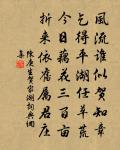 風流誰似賀知章
乞得平湖作草荒
今日藕花三百畝
折來依舊屬君庄
陳庚生賀家湖詞典網
集